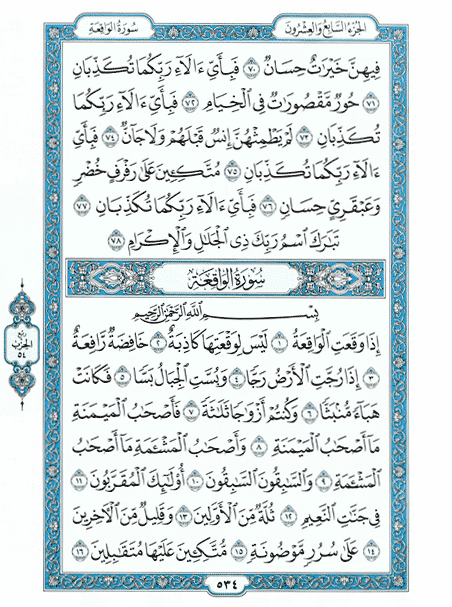 الجزء السابع والعشرون
سورة الواقعة
فِيهِنَّ خَيْرَٰتٌ حِسَانٌ ۝٧٠ فَبِأَيِّ ءَالَآءِ رَبِّكُمَا تُكَذِّبَانِ
۝٧١ حُورٌ مَّقْصُورَٰتٌ فِي ٱلْخِيَامِ ۝٧٢ فَبِأَيِّ ءَالَآءِ رَبِّكُمَا
تُكَذِّبَانِ ۝٧٣ لَمْ يَطْمِثْهُنَّ إِنسٌ قَبْلَهُمْ وَلَا جَآنٌّ ۝٧٤ فَبِأَيِّ
ءَالَآءِ رَبِّكُمَا تُكَذِّبَانِ ۝٧٥ مُتَّكِـِٔينَ عَلَىٰ رَفْرَفٍ خُضْرٍ
وَعَبْقَرِيٍّ حِسَانٍ ۝٧٦ فَبِأَيِّ ءَالَآءِ رَبِّكُمَا تُكَذِّبَانِ ۝٧٧
تَبَٰرَكَ ٱسْمُ رَبِّكَ ذِي ٱلْجَلَٰلِ وَٱلْإِكْرَامِ ۝٧٨
سُورَةُ الْوَاقِعَةِ
بِسْمِ ٱللَّهِ ٱلرَّحْمَٰنِ ٱلرَّحِيمِ
إِذَا وَقَعَتِ ٱلْوَاقِعَةُ ۝١ لَيْسَ لِوَقْعَتِهَا كَاذِبَةٌ ۝٢ خَافِضَةٌ رَّافِعَةٌ
۝٣ إِذَا رُجَّتِ ٱلْأَرْضُ رَجًّا ۝٤ وَبُسَّتِ ٱلْجِبَالُ بَسًّا ۝٥ فَكَانَتْ
هَبَآءً مُّنۢبَثًّا ۝٦ وَكُنتُمْ أَزْوَٰجًا ثَلَٰثَةً ۝٧ فَأَصْحَٰبُ ٱلْمَيْمَنَةِ
مَآ أَصْحَٰبُ ٱلْمَيْمَنَةِ ۝٨ وَأَصْحَٰبُ ٱلْمَشْـَٔمَةِ مَآ أَصْحَٰبُ
ٱلْمَشْـَٔمَةِ ۝٩ وَٱلسَّٰبِقُونَ ٱلسَّٰبِقُونَ ۝١٠ أُو۟لَٰٓئِكَ ٱلْمُقَرَّبُونَ ۝١١
فِي جَنَّٰتِ ٱلنَّعِيمِ ۝١٢ ثُلَّةٌ مِّنَ ٱلْأَوَّلِينَ ۝١٣ وَقَلِيلٌ مِّنَ ٱلْءَاخِرِينَ
۝١٤ عَلَىٰ سُرُرٍ مَّوْضُونَةٍ ۝١٥ مُّتَّكِـِٔينَ عَلَيْهَا مُتَقَٰبِلِينَ ۝١٦
ربع
الحزب
٥٤
٥٣٤